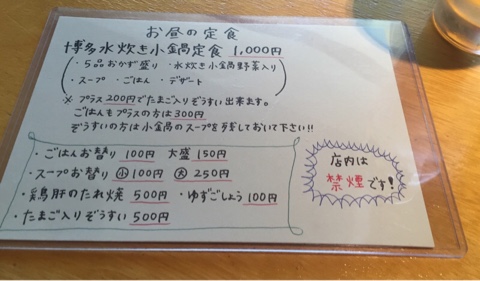 お昼の定食
博多水炊き小鍋定食 1,000円
・5品おかず盛り ・水炊き小鍋野菜入り
・スープ ・ごはん ・デザート
※ プラス200円でたまご入りぞうすい出来ます。
ごはんもプラスの方は300円
ぞうすいの方は小鍋のスープを残しておいて下さい!!
・ごはんお替り 100円 大盛 150円
・スープお替り 小 100円 大 250円
・鶏肝のたれ焼 500円 ・ゆずごしょう 100円
・たまご入りぞうすい 500円
店内は
禁煙です!